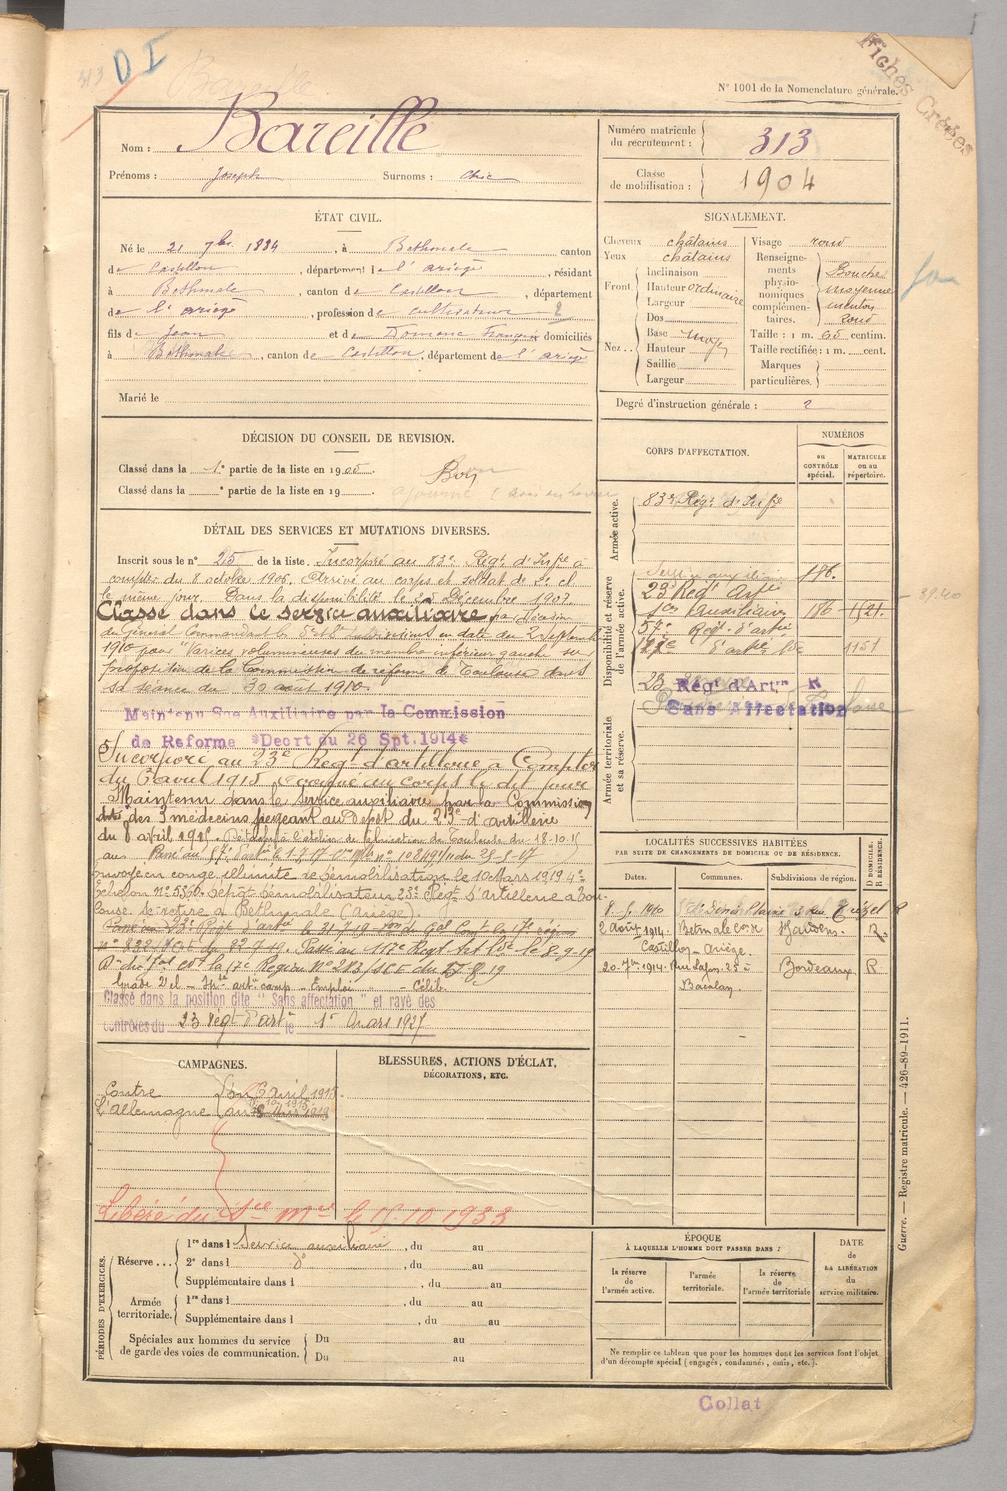 313 D I
Fiches Créées
N° 1001 de la Nomenclature générale.
Nom : Bareille
Prénoms : Joseph Surnoms : Chic
Numéro matricule du recrutement : 313
Classe de mobilisation : 1904
ÉTAT CIVIL.
Né le 21 7bre 1884, à Bethmale canton
de Castillon, département de l'ariège, résidant
à Bethmale, canton de Castillon, département
de l'ariège, profession de cultivateur 2
fils de Jean et de Domenc Françoise domiciliés
à Bethmale, canton de Castillon, département de l'ariège
Marié le
SIGNALEMENT.
Cheveux châtains
Yeux châtains
Front. Inclinaison
Hauteur ordinaire
Largeur
Nez.. Dos
Base moy
Hauteur
Saillie
Largeur
Visage rond
Renseignements physionomiques complémentaires. Bouche moyenne menton rond
Taille : 1 m. 65 centim.
Taille rectifiée : 1 m. cent.
Marques particulières.
Degré d'instruction générale : 2
DÉCISION DU CONSEIL DE REVISION.
Classé dans la 1e partie de la liste en 1905. Bon
Classé dans la e partie de la liste en 19
DÉTAIL DES SERVICES ET MUTATIONS DIVERSES.
Inscrit sous le n° 25 de la liste. Incorporé au 83e Régt d'Infie à
compter du 8 octobre 1906. Arrivé au corps et soldat de 2e cl
le même jour. Dans la disponibilité le Décembre 1907.
Classé dans le service auxiliaire par Décision
du Général Commandant les 5e et 8e subdivisions en date du 2 septembre
1910 pour Varices volumineuses du membre inférieur gauche sur
proposition de la Commission de réforme de Toulouse dans
sa séance du 30 août 1910.
Maintenu Sce Auxiliaire par la Commission
de Reforme Decrt du 26 Spt. 1914
Incorporé au 23e Régt d'artillerie à compter
du 6 avril 1915
Maintenu dans le service auxiliaire par la Commission
des 3 médecins siégeant au Dépôt du 23e d'artillerie
du 8 avril 1915. Détaché à l'atelier de fabrication de Toulouse du 18.10.15
au Passé au 57e d'artie le 1-7-17
envoyé en congé illimité de démobilisation le 10 Mars 1919 4e
échelon n° 5360. Dépôt démobilisateur 23e Régt d'Artillerie à Toulouse.
Se retire à Bethmale (Ariège).
Passé au 23e Régt d'artie le 31-7-19 von du Gal Comt la 17e région
Passé au 117e Régt Art Lde le 8-9-19
Grade 2e cl - Spté artie camp - Emploi - Célib.
Classé dans la position dite "Sans affectation" et rayé des
contrôles du 23 Régt d'artie le 1er Mars 1927
CORPS D'AFFECTATION.
NUMÉROS
au CONTRÔLE spécial.
MATRICULE ou au répertoire.
Armée active.
83e Régt d'Infie
Disponibilité et réserve de l'armée active.
Service auxiliaire 186.
23e Régt Artie
sces Auxiliaires 186 1121.
57e Régt d'artie
117e d'artie Lde 1151
39.40
Armée territoriale et sa réserve.
23 Régt d'Artie R
Sans Affectation
LOCALITÉS SUCCESSIVES HABITÉES
PAR SUITE DE CHANGEMENTS DE DOMICILE OU DE RÉSIDENCE.
Dates. Communes. Subdivisions de région. D DOMICILE. R RÉSIDENCE.
8-5-1910 St Denis Plaine 3 rue Trézel R
2 août 1914. Betmale con de Castillon Ariège. St Gaudens. R.
20-7re 1914. Rue Lafon 25 Bacalan Bordeaux R
CAMPAGNES.
Contre L'Allemagne
du 6 avril 1915
BLESSURES, ACTIONS D'ÉCLAT,
DÉCORATIONS, ETC.
Libéré du Sce Mre le 15.10 1933
PÉRIODES D'EXERCICES.
Réserve... 1re dans l Service auxiliaire, du au
2e dans l do, du au
Supplémentaire dans l , du au
Armée territoriale. 1re dans l , du au
Supplémentaire dans l , du au
Spéciales aux hommes du service de garde des voies de communication. Du au
Du au
ÉPOQUE
À LAQUELLE L'HOMME DOIT PASSER DANS :
la réserve de l'armée active.
l'armée territoriale.
la réserve de l'armée territoriale
DATE de LA LIBÉRATION du service militaire.
Ne remplir ce tableau que pour les hommes dont les services font l'objet
d'un décompte spécial (engagés, condamnés, omis, etc.).
Guerre. — Registre matricule. — 426-89-1911.
Collat